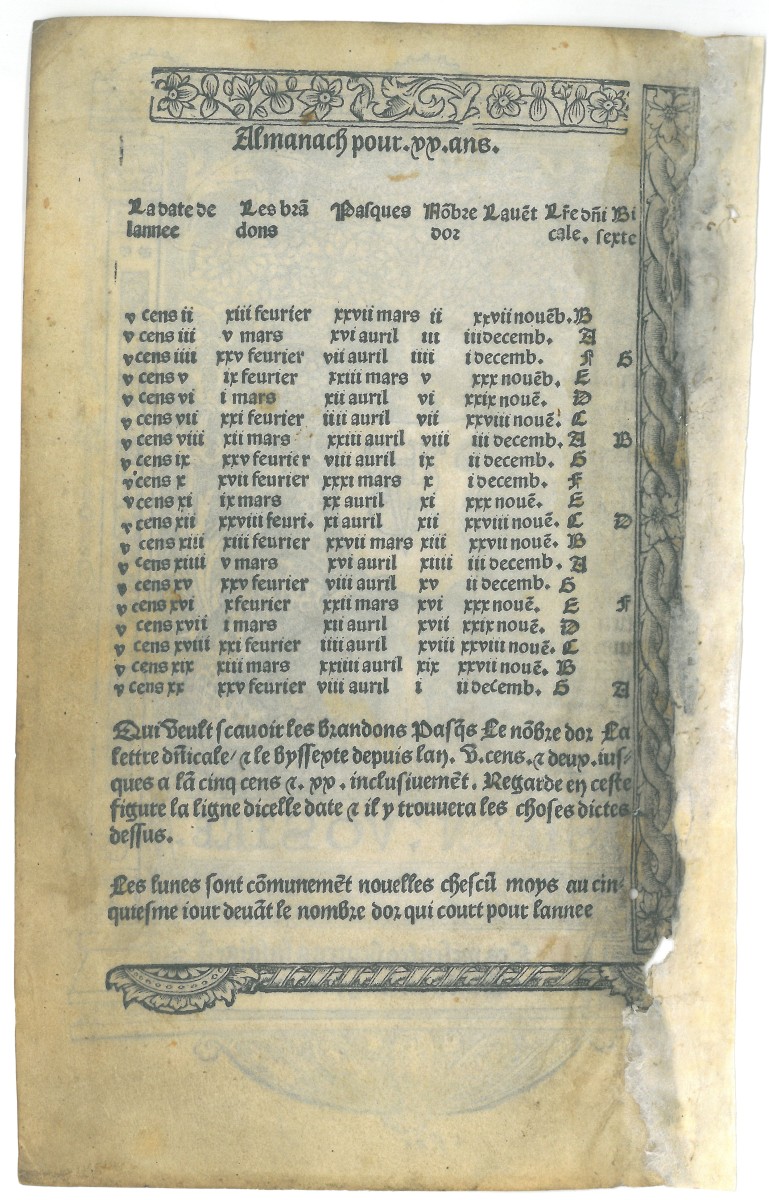 Almanach pour .xx. ans.
La date de Les brã Pasques Nõbre Lauẽt Lr̃e dñi Bi
lannee dons dor cale. sexte
v cens ii xiii feurier xxvii mars ii xxvii nouẽb. B
v cens iii v mars xvi auril iii iii decemb. A
v cens iiii xxv feurier vii auril iiii i decemb. F G
v cens v ix feurier xxiii mars v xxx nouẽb. E
v cens vi i mars xii auril vi xxix nouẽ. D
v cens vii xxi feurier iiii auril vii xxviii nouẽ. C
v cens viii xii mars xxiii auril viii iii decemb. A B
v cens ix xxv feurier viii auril ix ii decemb. G
v cens x xvii feurier xxxi mars x i decemb. F
v cens xi ix mars xx auril xi xxx nouẽ. E
v cens xii xxviii feuri. xi auril xii xxviii nouẽ. C D
v cens xiii xiii feurier xxvii mars xiii xxvii nouẽ. B
v cens xiiii v mars xvi auril xiiii iii decemb. A
v cens xv xxv feurier viii auril xv ii decemb. G
v cens xvi x feurier xxii mars xvi xxx nouẽ. E F
v cens xvii i mars xii auril xvii xxix nouẽ. D
v cens xviii xxi feurier iiii auril xviii xxviii nouẽ. C
v cens xix xiii mars xxiiii auril xix xxvii nouẽ. B
v cens xx xxv feurier viii auril i ii decemb. G A
Qui veult scauoir les brandons Pasq̃s Le nõbre dor La
lettre dñicale/ ⁊ le byssexte depuis lan. v. cens. ⁊ deux. ius⸗
ques a lã cinq cens ⁊. xx. inclusiuemẽt. Regarde en ceste
figure la ligne dicelle date ⁊ il y trouuera les choses dictes
dessus.
Les lunes sont cõmunemẽt nouelles chescũ moys au cin⸗
quiesme iour deuãt le nombre dor qui court pour lannee